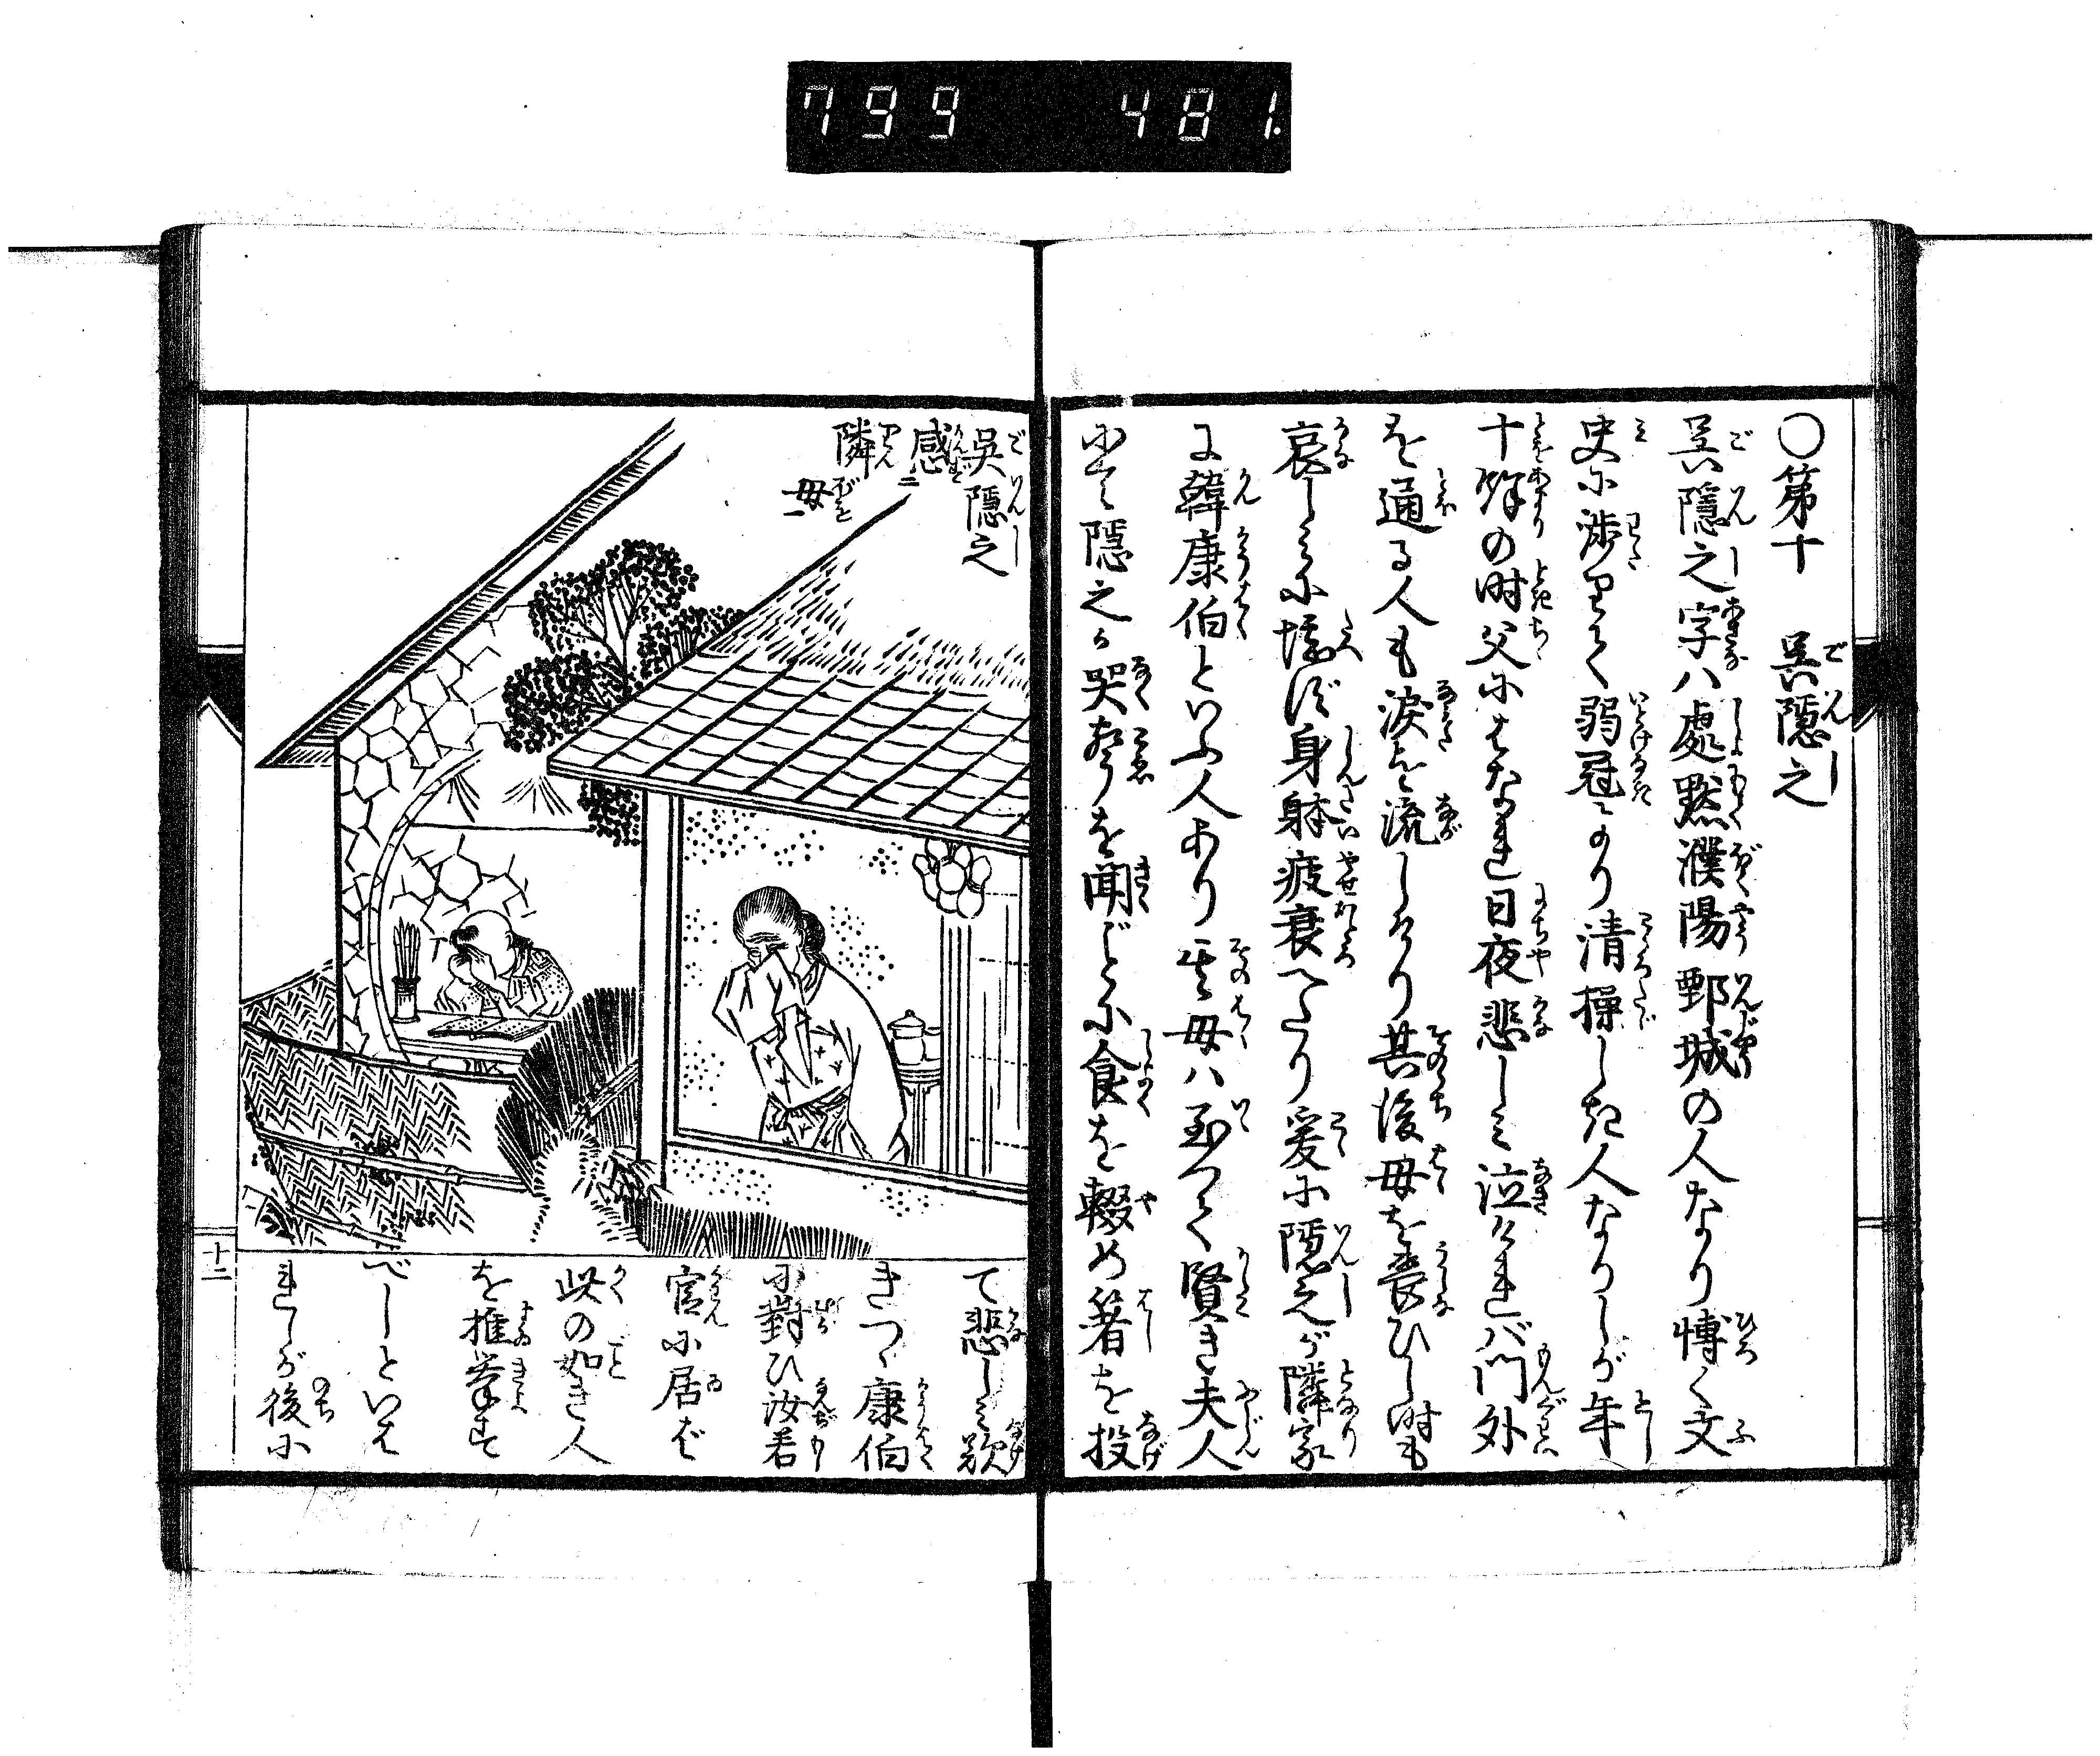 799 481.
〇第十 呉隠之
呉隠之字ハ處黙濮陽鄄城の人なり博く文
史に渉りて弱冠より清操しき人なりしが年
十餘の時父にはなれ日夜悲しミ泣けれバ門外
を通る人も涙を流しけり其後母を喪ひし時も
哀しミに堪ず身躰疲衰へたり爰に隠之が隣家
に韓康伯といふ人あり其母ハ至つて賢き夫人
にて隠之が哭声を聞ごとに食を輟め箸を投
呉隠之
感二
隣
母一
て悲しミ歎
きつゝ康伯
に對ひ汝若
官に居ば
此の如き人
を推挙す
べしといは
れしが後に
十二